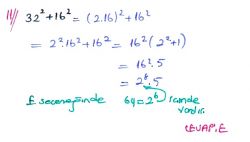 11/ 32² + 16² = (2.16)² + 16²
= 2².16² + 16² = 16² (2² + 1)
= 16² . 5
= 2⁸ . 5
E seçeneğinde 64 = 2⁶ içinde
vardır.
CEVAP: E